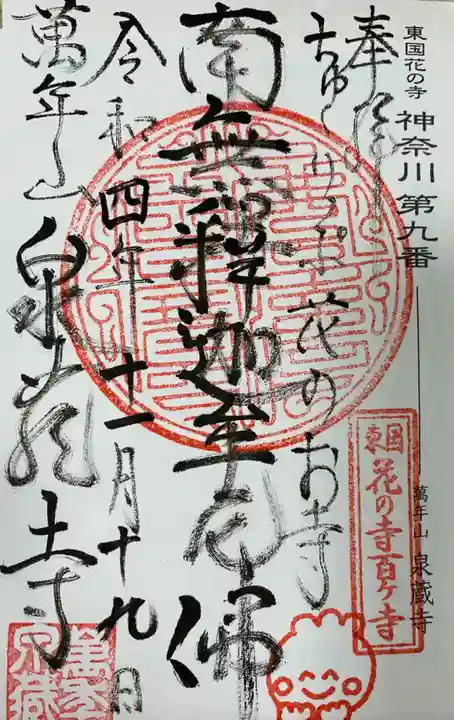 東国花の寺 神奈川 第九番
萬年山 泉蔵寺
奉拝
花のお寺
南無釋迦牟尼佛
令和四年十一月十九日
萬年山 泉蔵寺
東国花の寺百ヶ寺